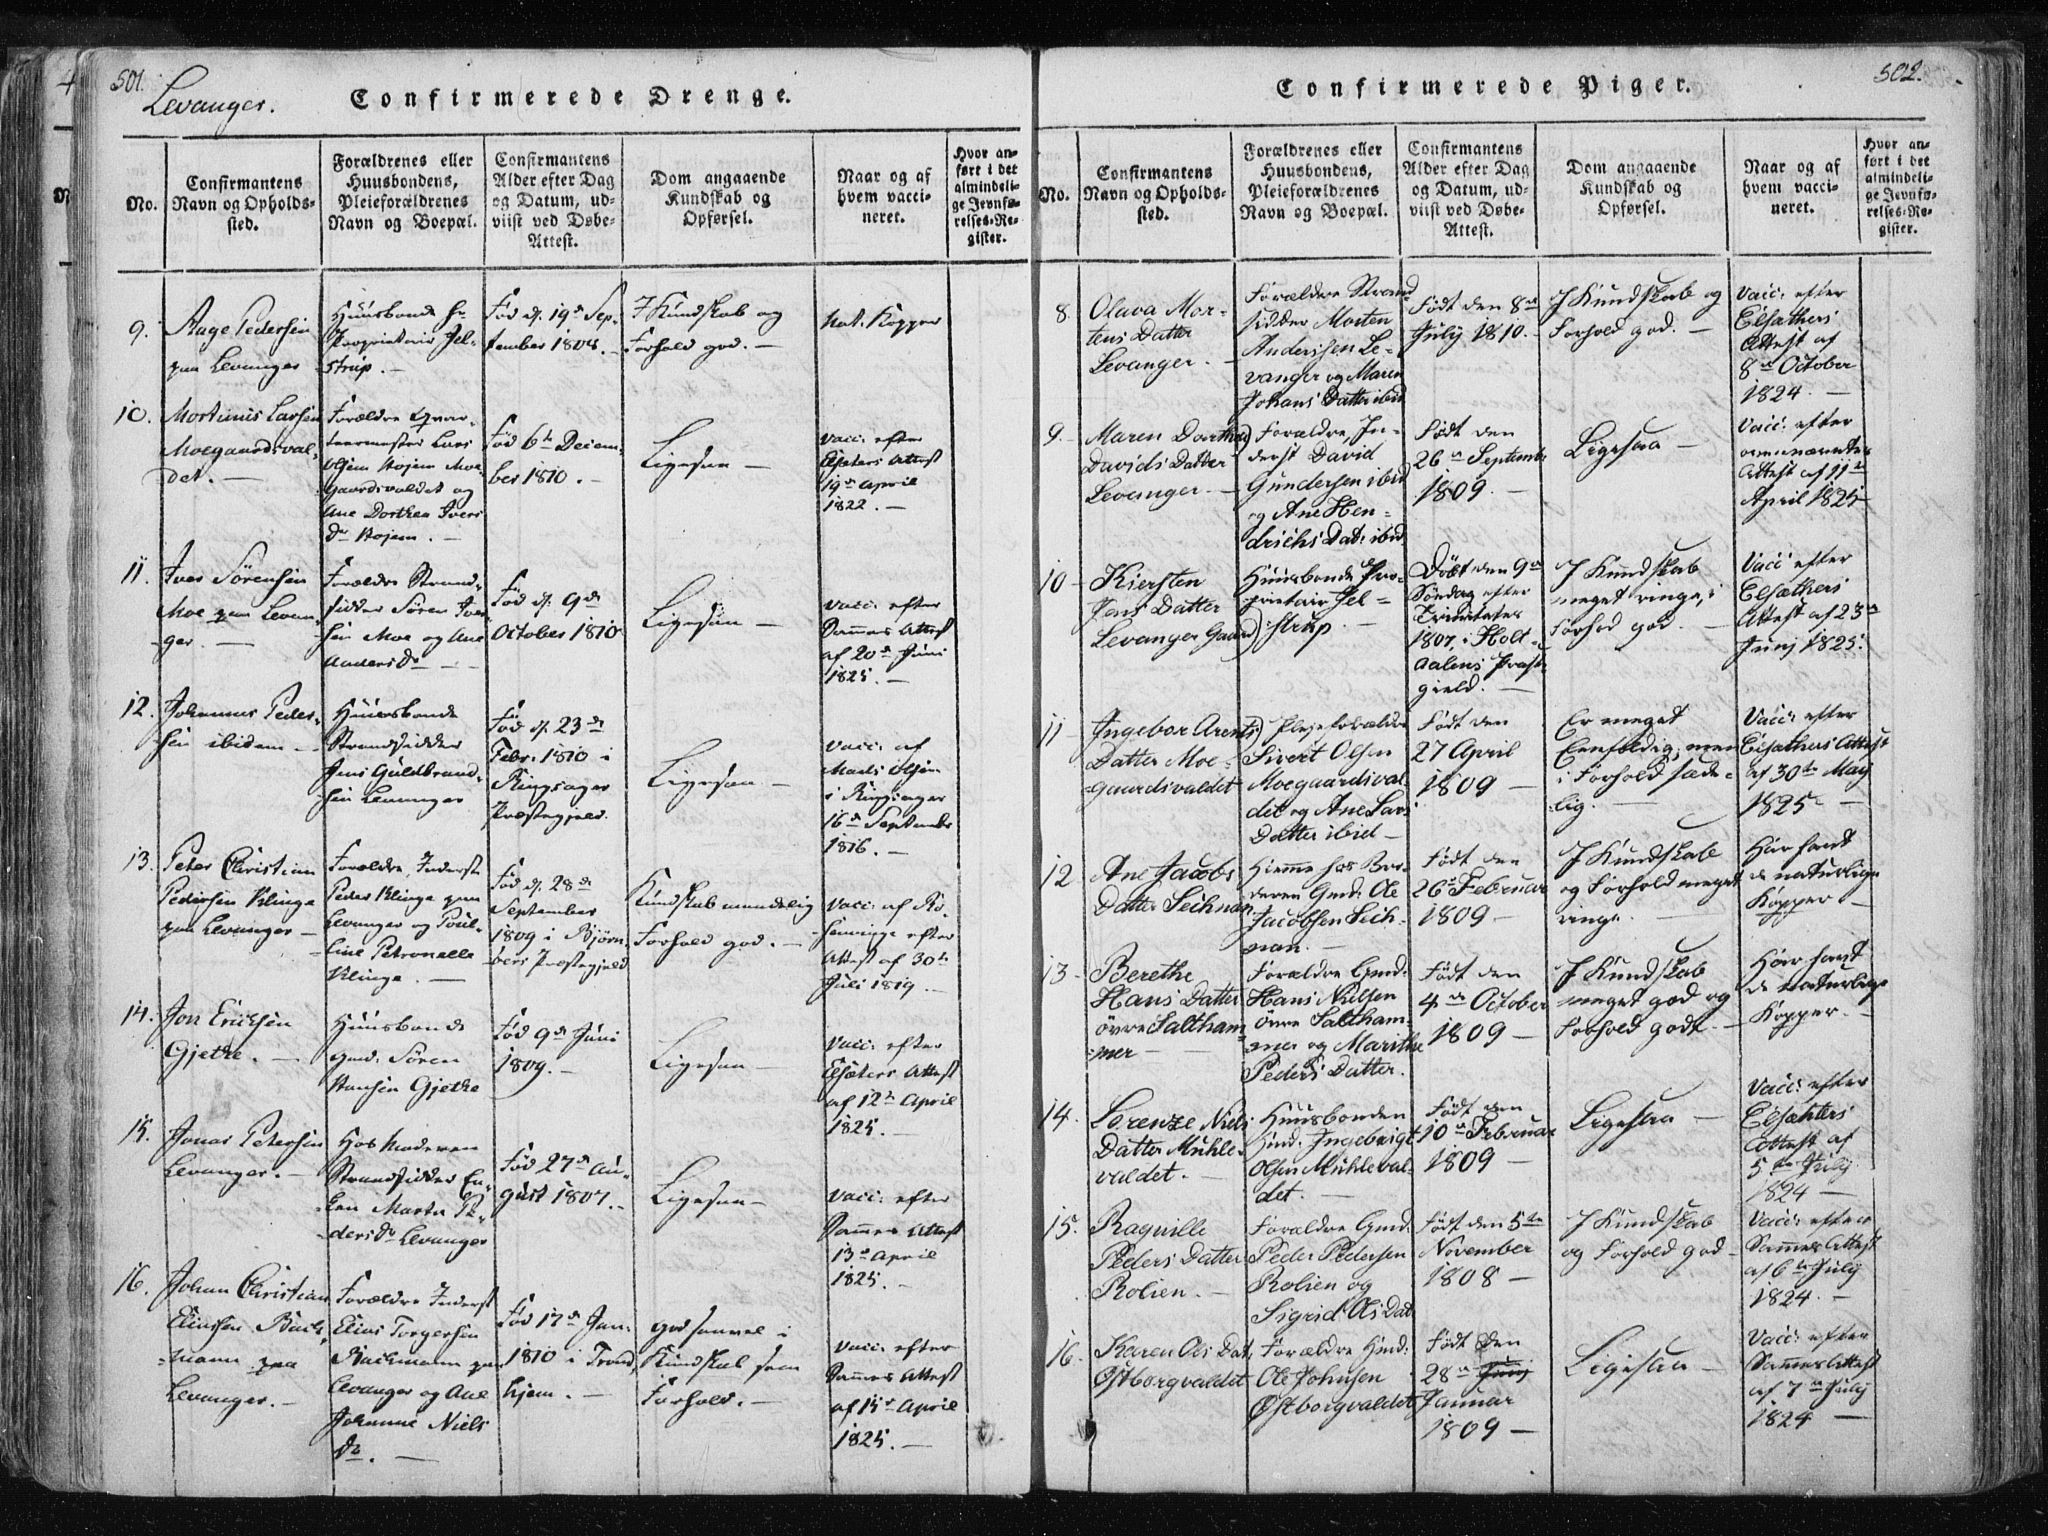 501.
Levanger.
Confirmerede Drenge.
No.
Confirmantens
Navn og Opholds-
sted.
Forældrenes eller
Huusbondens,
Pleieforældrenes
Navn og Boepæl.
Confirmantens
Alder efter Dag
og Datum, ud-
viist ved Døbe-
Attest.
Dom angaaende
Kundskab og
Opførsel.
Naar og af
hvem vacci-
neret.
Hvor an-
ført i det
almindeli-
ge Jevnfø-
relses-Re-
gister.
9.
Aage Pedersen
paa Levanger
Huusbonde Hr
Proprietair Jel-
strup. –
Fød d. 19de Sep-
tember 1808. –
I Kundskab og
Forhold god. –
Nat. Kopper
10.
Mortinus Larsen
Moegaardsval-
det. –
Forældre Qvar-
teermester Lars
Olsen Hojem Moe-
gaardsvaldet og
Ane Dorthea Ivers
Dr Hojem. –
Fød 6te Decem-
ber 1810. –
Ligesaa –
Vacc: efter
Elsæters Attest
19de April
1822. –
11.
Iver Sørensen
Moe paa Levan-
ger. –
Forældre Strand-
sidder Søren Iver-
sen Moe og Ane
Anders Dr –
Fød d. 9de
October 1810
Ligesaa –
Vacc: efter
Sammes Attest
af 20de Juni
1825. –
12.
Johannes Peder-
sen ibidem –
Huusbonde
Strandsidder
Jens Guldbrand-
sen Levanger
Fød d. 23de
Febr. 1810 i
Ringsager
Præstegjeld.
Ligesaa –
Vacc: af
Mads Olsen
i Ringsager
16de September
1816. –
13.
Peter Christian
Pedersen Klinge
paa Levanger –
Forældre, Inderst
Peder Klinge paa
Levanger og Poul-
line Petronelle
Klinge. –
Fød d. 28de
September
1809 i Bjørn-
øers Præstegjeld
Kundskab maadelig
Forhold god. –
Vacc: af
efter
Attest af 30te
Juli 1819. –
14.
Jon Ericksen
Gjetke. –
Huusbonde
Gmd. Søren
Hansen Gjetke
Fød 9de Juni
1809. –
Ligesaa –
Vacc: efter
Elsæters Attest
af 12te April
1825. –
15.
Jonas Petersen
Levanger. –
Hos Moderen
Strandsidder En-
ken Marta Pe-
ders Dr Levanger
Fød 27de Au-
gust 1807. –
Ligesaa –
Vacc: efter
Sammes Attest
13de April
1825. –
16.
Johan Christian
Eliassen Bach-
mann paa
Levanger. –
Forældre Inderst
Elias Torgersen
Bachmann paa
Levanger og Ane
Johanne Niels
Dr. –
Fød 17de Jan.
1810 i Trond-
hjem. –
God saavel i
Kundskab som
Forhold. –
Vacc: efter
Sammes Attest
af 15de April
1825. –
502.
Confirmerede Piger.
No.
Confirmantens
Navn og Opholds-
sted.
Forældrenes eller
Huusbondens,
Pleieforældrenes
Navn og Boepæl.
Confirmantens
Alder efter Dag
og Datum, ud-
viist ved Døbe-
Attest.
Dom angaaende
Kundskab og
Opførsel.
Naar og af
hvem vacci-
neret.
Hvor an-
ført i det
almindeli-
ge Jevnfø-
relses-Re-
gister.
8.
Olava Mor-
tens Datter
Levanger. –
Forældre Strand-
sidder Morten
Anderssen Le-
vanger og Maren
Johans Datter ibid
Født den 8de
July 1810. –
I Kundskab og
Forhold god. –
Vacc: efter
Elsæthers
Attest af
8de October
1824. –
9. –
Maren Dorthea
Davids Datter
Levanger. –
Forældre, In-
derst David
Gundersen ibid
og Ane Hen-
drichs Dat: ibid
Født den
26de Septembr
1809. –
Ligesaa –
Vacc: efter
ovennævntes
Attest af 11te
April 1825 –
10 –
Kiersten
Jens Datter
Levanger Gaard
Huusbonde Pro-
prietair Jel-
strup. –
Døbt den 9de
Søndag efter
Trinitatis
1807, i Holt-
aalens Præst-
gield. –
I Kundskab
meget ringe, i
Forhold god. –
Vacc efter
Elsæthers
Attest af 23de
Junj 1825.
11 –
Ingebor Arents
Datter Moe-
gaardsvaldet
Plejeforældre
Sivert Olsen
Moegaardsval-
det og Ane Lars
Datter ibid –
Født den
27 April
1809 –
Er meget
Eenfoldig, men
i Forhold sæde-
lig. –
Vacc: efter
Elsæthers Attest
af 30te May
1825 –
12
Ane Jacobs
Datter Seihnan
Hiemme hos Bro-
deren Gmd: Ole
Jacobsen Seih-
nan. –
Født den
26de Februar
1809 –
I Kundskab
og Forhold meget
ringe. –
Har havt
de naturlige
Kopper –
13 –
Berethe
Hans Datter
övre Saltham-
mer –
Forældre Gmd:
Hans Nielsen
övre Saltham-
mer og Marithe
Peders Datter.
Født den
4de October
1809 –
I Kundskab
meget god og
Forhold godt. –
Har havt
de naturlige
Kopper. –
14.
Lorenze Niels
Datter Mühle-
valdet. –
Huusbonden
Hmd: Ingebrigt
Olsen Mühleval-
det. –
Født den
10de Februar
1809 –
Ligesaa –
Vacc: efter
Elsæhters
Attest af
5te July
1824 –
15.
Ragnille
Peders Datter
Rolien. –
Forældre Gmd.
Peder Pedersen
Rolien og
Sigrid Ols Dat
Født den 5te
November
1808 –
I Kundskab
og Forhold god –
Vacc: efter
Sammes Attest
af 6te July
1824. –
16.
Karen Ols Dat.
Østborgvaldet
Forældre Hmd:
Ole Johnsen
Østborgvaldet
Født den
28de Junj
Januar
1809 –
Ligesaa –
Vacc: efter
Sammes Attest
af 7de July
1824 –